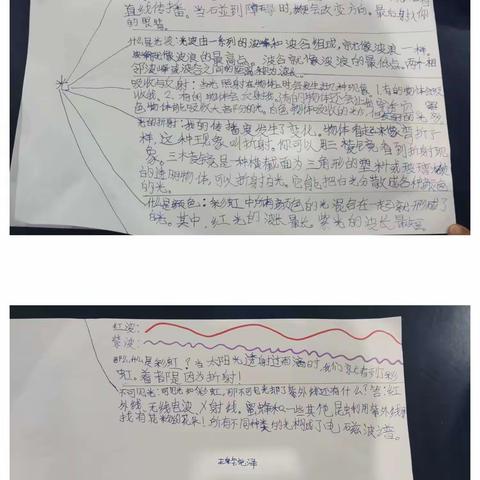 直线传播。当石碰到障碍时,就会改变方向。最后射入你
的眼睛。
什么是光波:光波由一系列的波峰和波谷组成。就像波浪一样。
波峰就像波浪的最高点。波谷就像波浪的最低点。两个相
邻波峰或波谷之间的距离称为波长。
吸收与反射:当光照射在物体上时会发生几种现象。1.有的物体会吸
收光。2.有的物体会反射光。
色物体能吸收大部分的光。白色物体吸收的光少
光的折射:光的传播发生了变化。物体看起来像弯折了一
样,这种现象叫折射。你可以用三棱镜看到折射现
象。三棱镜是一种横截面为三角形的塑料或玻璃做成
的透明物体,可以折射白光。它能把白光分散成各种颜色
的光。
什么是颜色:彩虹中所有颜色的光混合在一起就形成了
白光。其中,红光的波长最长,紫光的波长最短。
红波:
紫波:
那么什么是彩虹?当太阳光透射过雨滴时,我们就会看到彩
虹。着者是因为折射!
不可见光:可见光和彩虹,那不可见光却了紫外线还有什么?答:红
外线、无线电波、X射线。蜜蜂和一些其他昆虫利用紫外线寻
找有花粉的花朵!所有不同种类的光构成了电磁波谱。